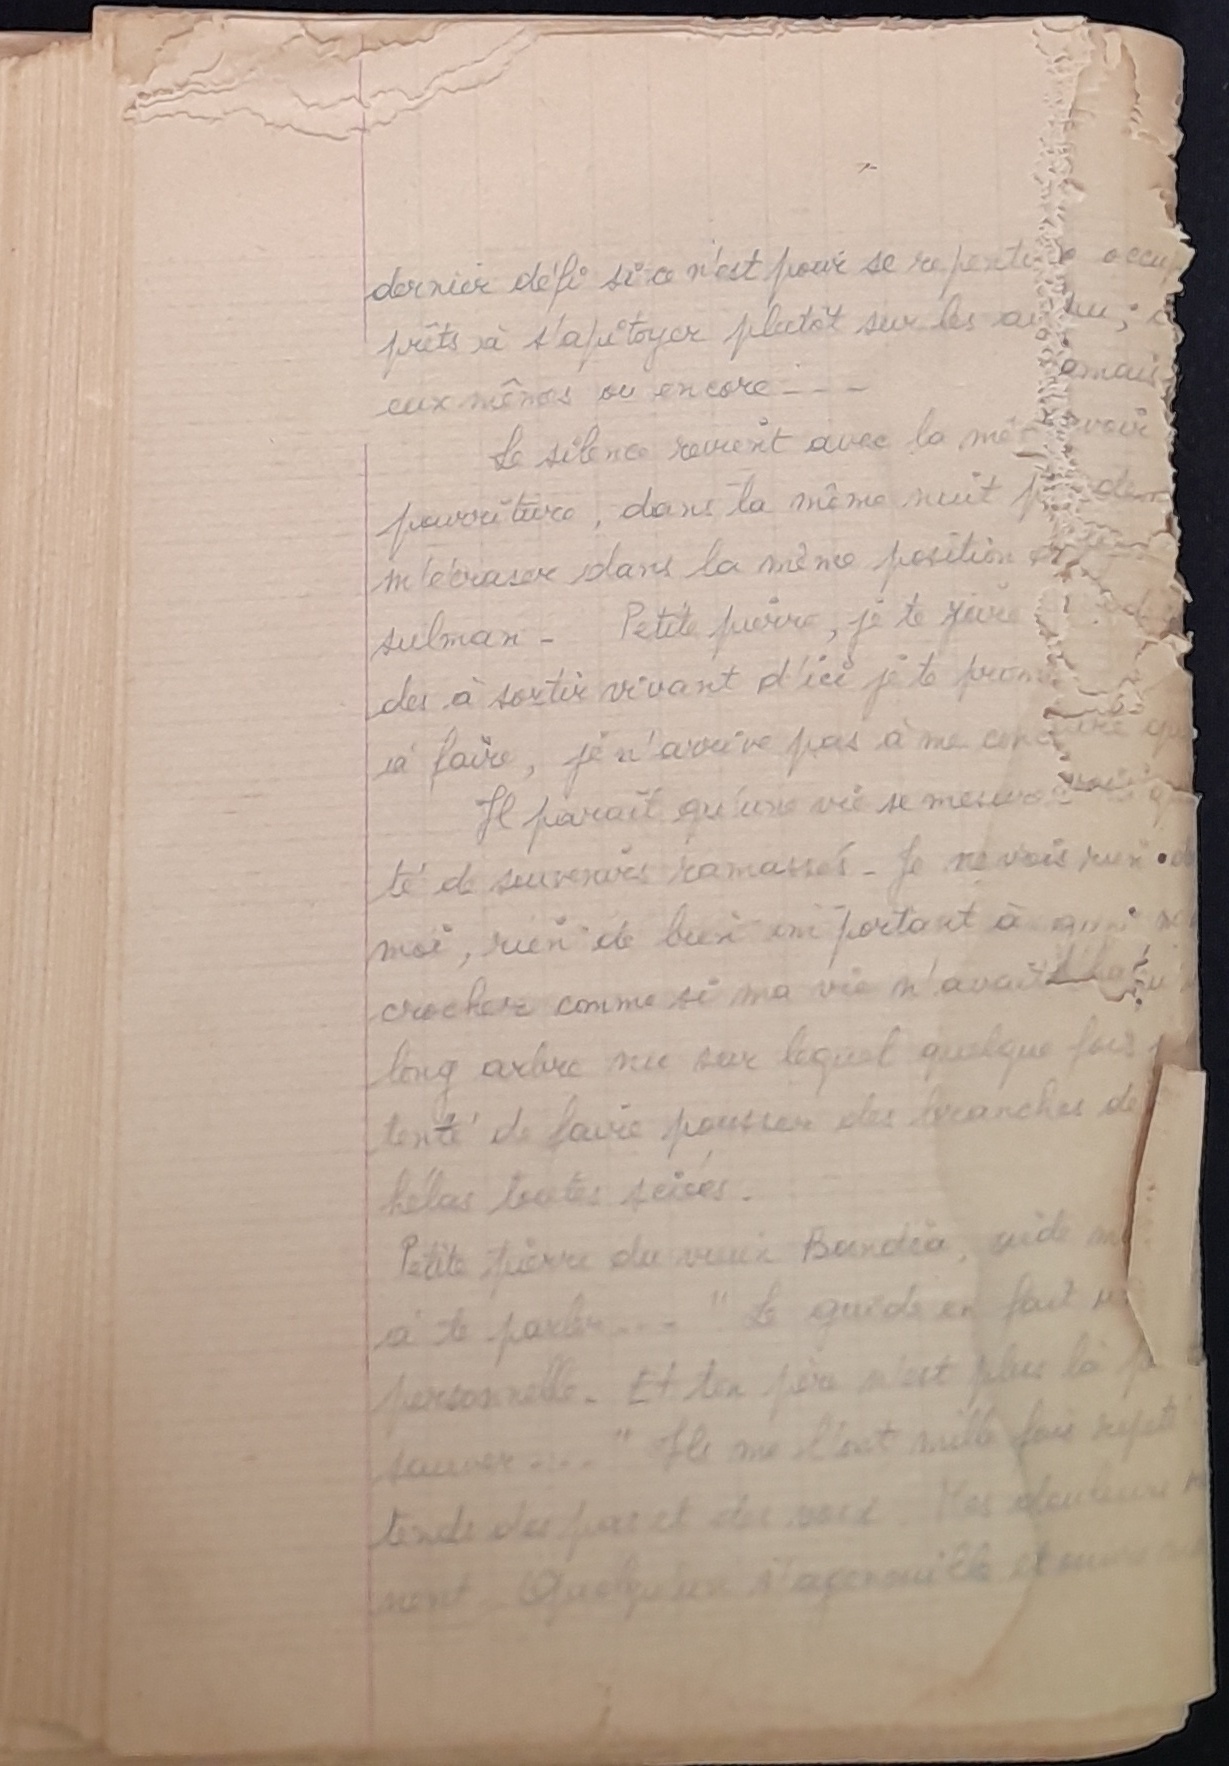 dernier défi si ce n'est pour se repentir occup
prêts à s'apitoyer plutôt sur les au
eux mêmes ou encore - - - amais
Le silence revient avec la mê voir
pourriture, dans la même nuit p
m'écraser dans la même position
sulman - Petite pierre, je te jure
des à sortir vivant d'ici je te prom
à faire, je n'arrive pas à me con
Il parait qu'une vie se mesure
té de souvenirs ramassés - Je ne vois rien
moi, rien de bien important à quoi m
crocher comme si ma vie n'avait
long arbre nu sur lequel quelque fois
tenté de faire pousser des branches de
hélas toutes sciées.
Petite pierre du vieux Bandia, aide m
à te parler - - - " Le guide en fait
personnelle - Et ton père n'est plus là p
sauver - - - " Ils me l'ont mille fois répété
tends des pas et des voix. Mes douleurs
nent - Quelqu'un s'agenouille et